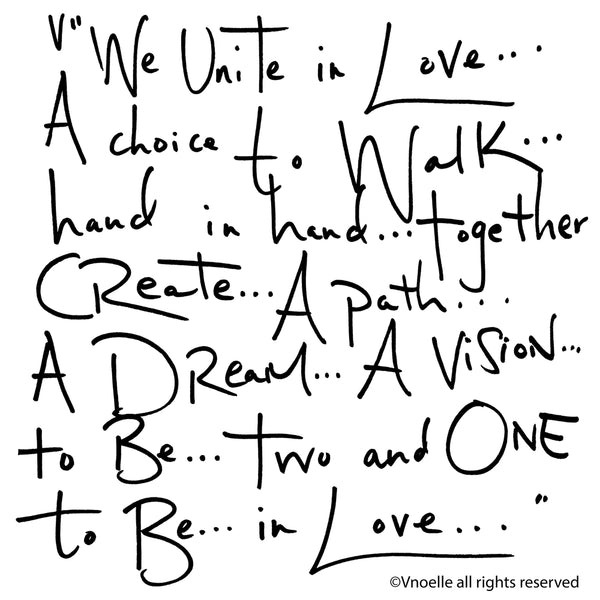 V" "We Unite in Love...
A choice to Walk...
hand in hand...together
Create...A path...
A Dream...A Vision...
to Be...Two and ONE
to Be...in Love..."
©Vnoelle all rights reserved